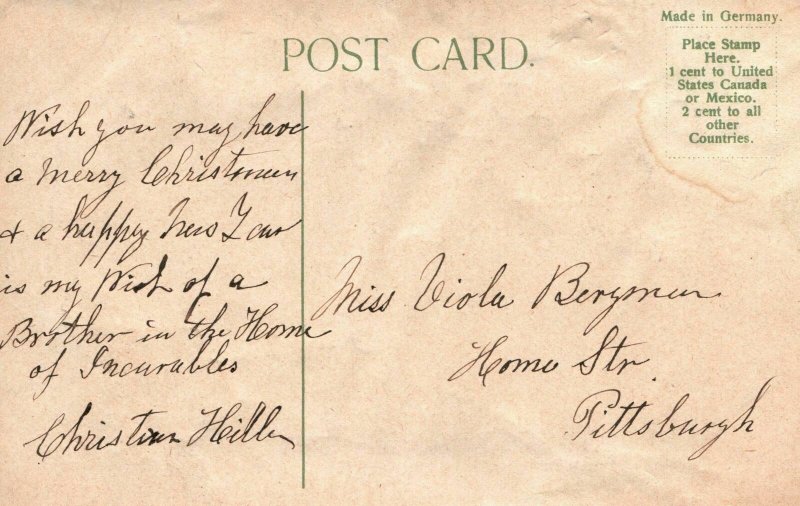 Made in Germany.
POST CARD.
Place Stamp
Here.
1 cent to United
States Canada
or Mexico.
2 cent to all
other
Countries.
Wish you may have
a merry Christmas
& a happy New Year
is my Wish of a
Brother in the Home
of Incurables
Christian Hiller
Miss Viola Bergman
Home Str.
Pittsburgh